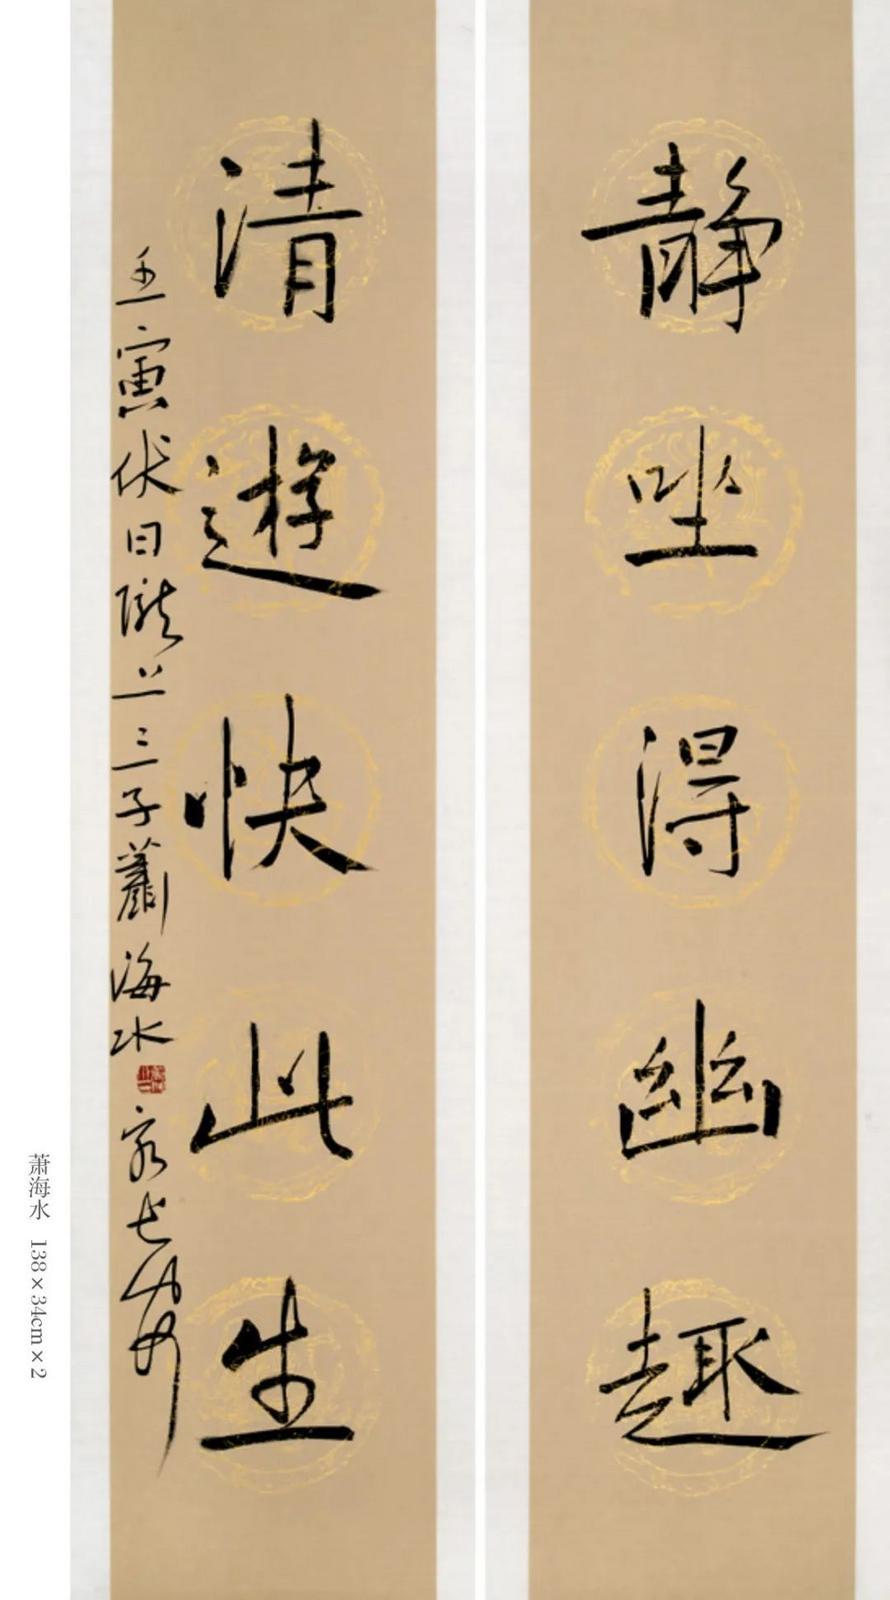 静坐得幽趣
清遊快此生
壬寅伏日隴上三子蕭海水
萧海水 138×34cm×2